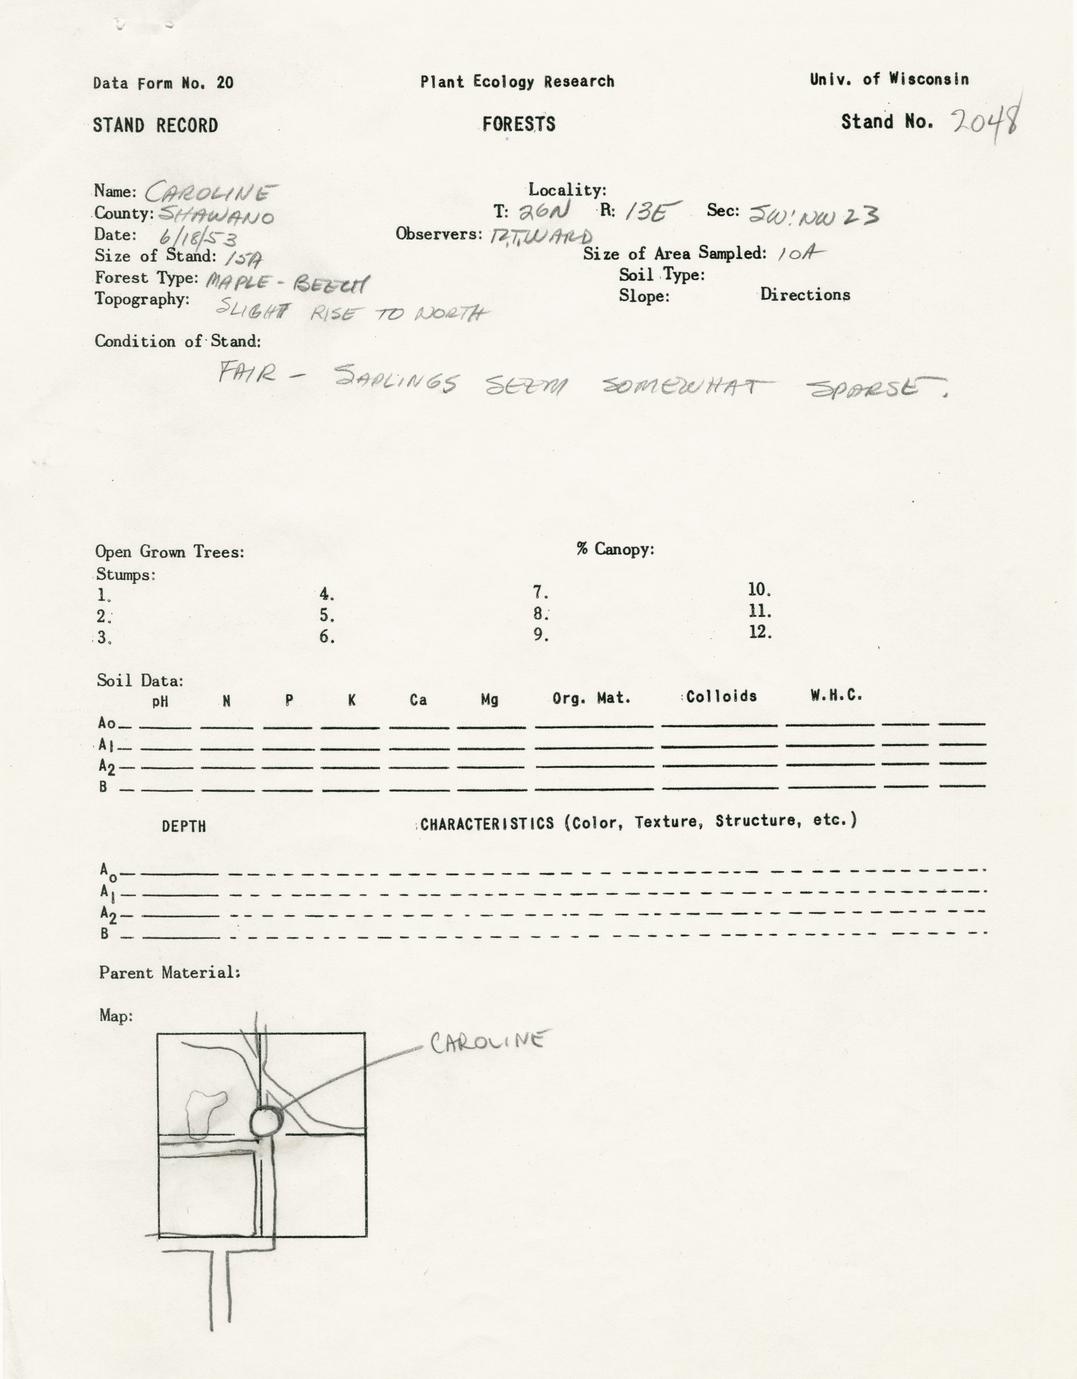 Data Form No. 20 Plant Ecology Research Univ. of Wisconsin
STAND RECORD FORESTS Stand No. 2048
Name: CAROLINE Locality:
County: SHAWANO T: 26N R: 13E Sec: SW:NW 23
Date: 6/18/53 Observers: R.T.WARD
Size of Stand: 15A Size of Area Sampled: 10A
Forest Type: MAPLE - BEECH Soil Type:
Topography: SLIGHT RISE TO NORTH Slope: Directions
Condition of Stand:
FAIR - SAPLINGS SEEM SOMEWHAT SPARSE.
Open Grown Trees: % Canopy:
Stumps:
1. 4. 7. 10.
2. 5. 8. 11.
3. 6. 9. 12.
Soil Data:
pH N P K Ca Mg Org. Mat. Colloids W.H.C.
Ao
A1
A2
B
DEPTH CHARACTERISTICS (Color, Texture, Structure, etc.)
Ao
A1
A2
B
Parent Material:
Map:
CAROLINE